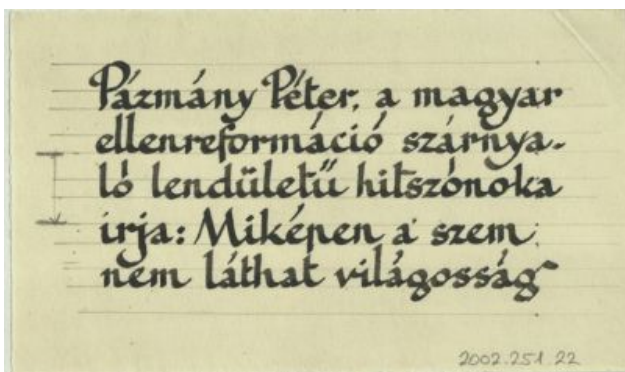 Pázmány Péter, a magyar
ellenreformáció szárnya-
ló lendületű hitszónoka
irja: Miképen a szem
nem láthat világosság
2002.251.22